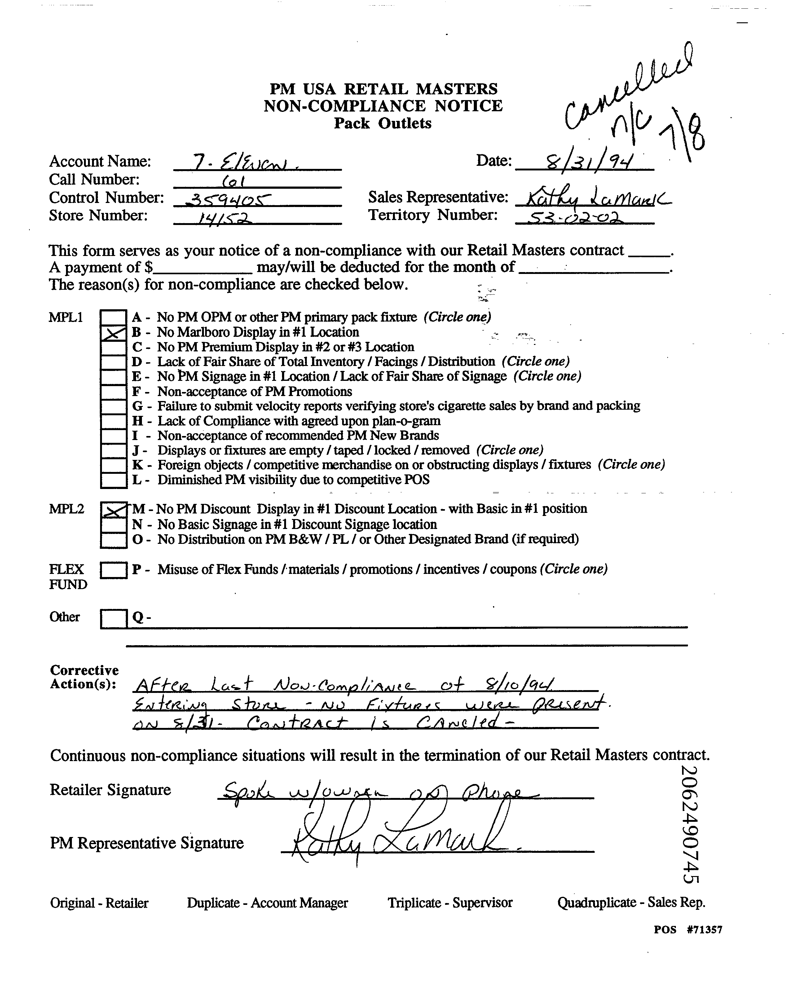 Cancelled
n/c
7/8
PM USA RETAIL MASTERS
NON-COMPLIANCE NOTICE
Pack Outlets
Account Name: 7-Eleven. Date: 8/31/94
Call Number: 101
Control Number: 359405 Sales Representative: Kathy LaMark
Store Number: 14152 Territory Number: 53-02-02
This form serves as your notice of a non-compliance with our Retail Masters contract _____.
A payment of $____________ may/will be deducted for the month of __________________.
The reason(s) for non-compliance are checked below.
MPL1 A - No PM OPM or other PM primary pack fixture (Circle one)
B - No Marlboro Display in #1 Location
C - No PM Premium Display in #2 or #3 Location
D - Lack of Fair Share of Total Inventory / Facings / Distribution (Circle one)
E - No PM Signage in #1 Location / Lack of Fair Share of Signage (Circle one)
F - Non-acceptance of PM Promotions
G - Failure to submit velocity reports verifying store's cigarette sales by brand and packing
H - Lack of Compliance with agreed upon plan-o-gram
I - Non-acceptance of recommended PM New Brands
J - Displays or fixtures are empty / taped / locked / removed (Circle one)
K - Foreign objects / competitive merchandise on or obstructing displays / fixtures (Circle one)
L - Diminished PM visibility due to competitive POS
MPL2 M - No PM Discount Display in #1 Discount Location - with Basic in #1 position
N - No Basic Signage in #1 Discount Signage location
O - No Distribution on PM B&W / PL / or Other Designated Brand (if required)
FLEX P - Misuse of Flex Funds / materials / promotions / incentives / coupons (Circle one)
FUND
Other Q -
Corrective
Action(s): After Last Non-Compliance of 8/10/94
Entering Store - No Fixtures were present.
on 8/31- Contract is Canceled-
Continuous non-compliance situations will result in the termination of our Retail Masters contract.
Retailer Signature Spoke w/owner on phone
PM Representative Signature Kathy LaMark.
2062490745
Original - Retailer Duplicate - Account Manager Triplicate - Supervisor Quadruplicate - Sales Rep.
POS #71357